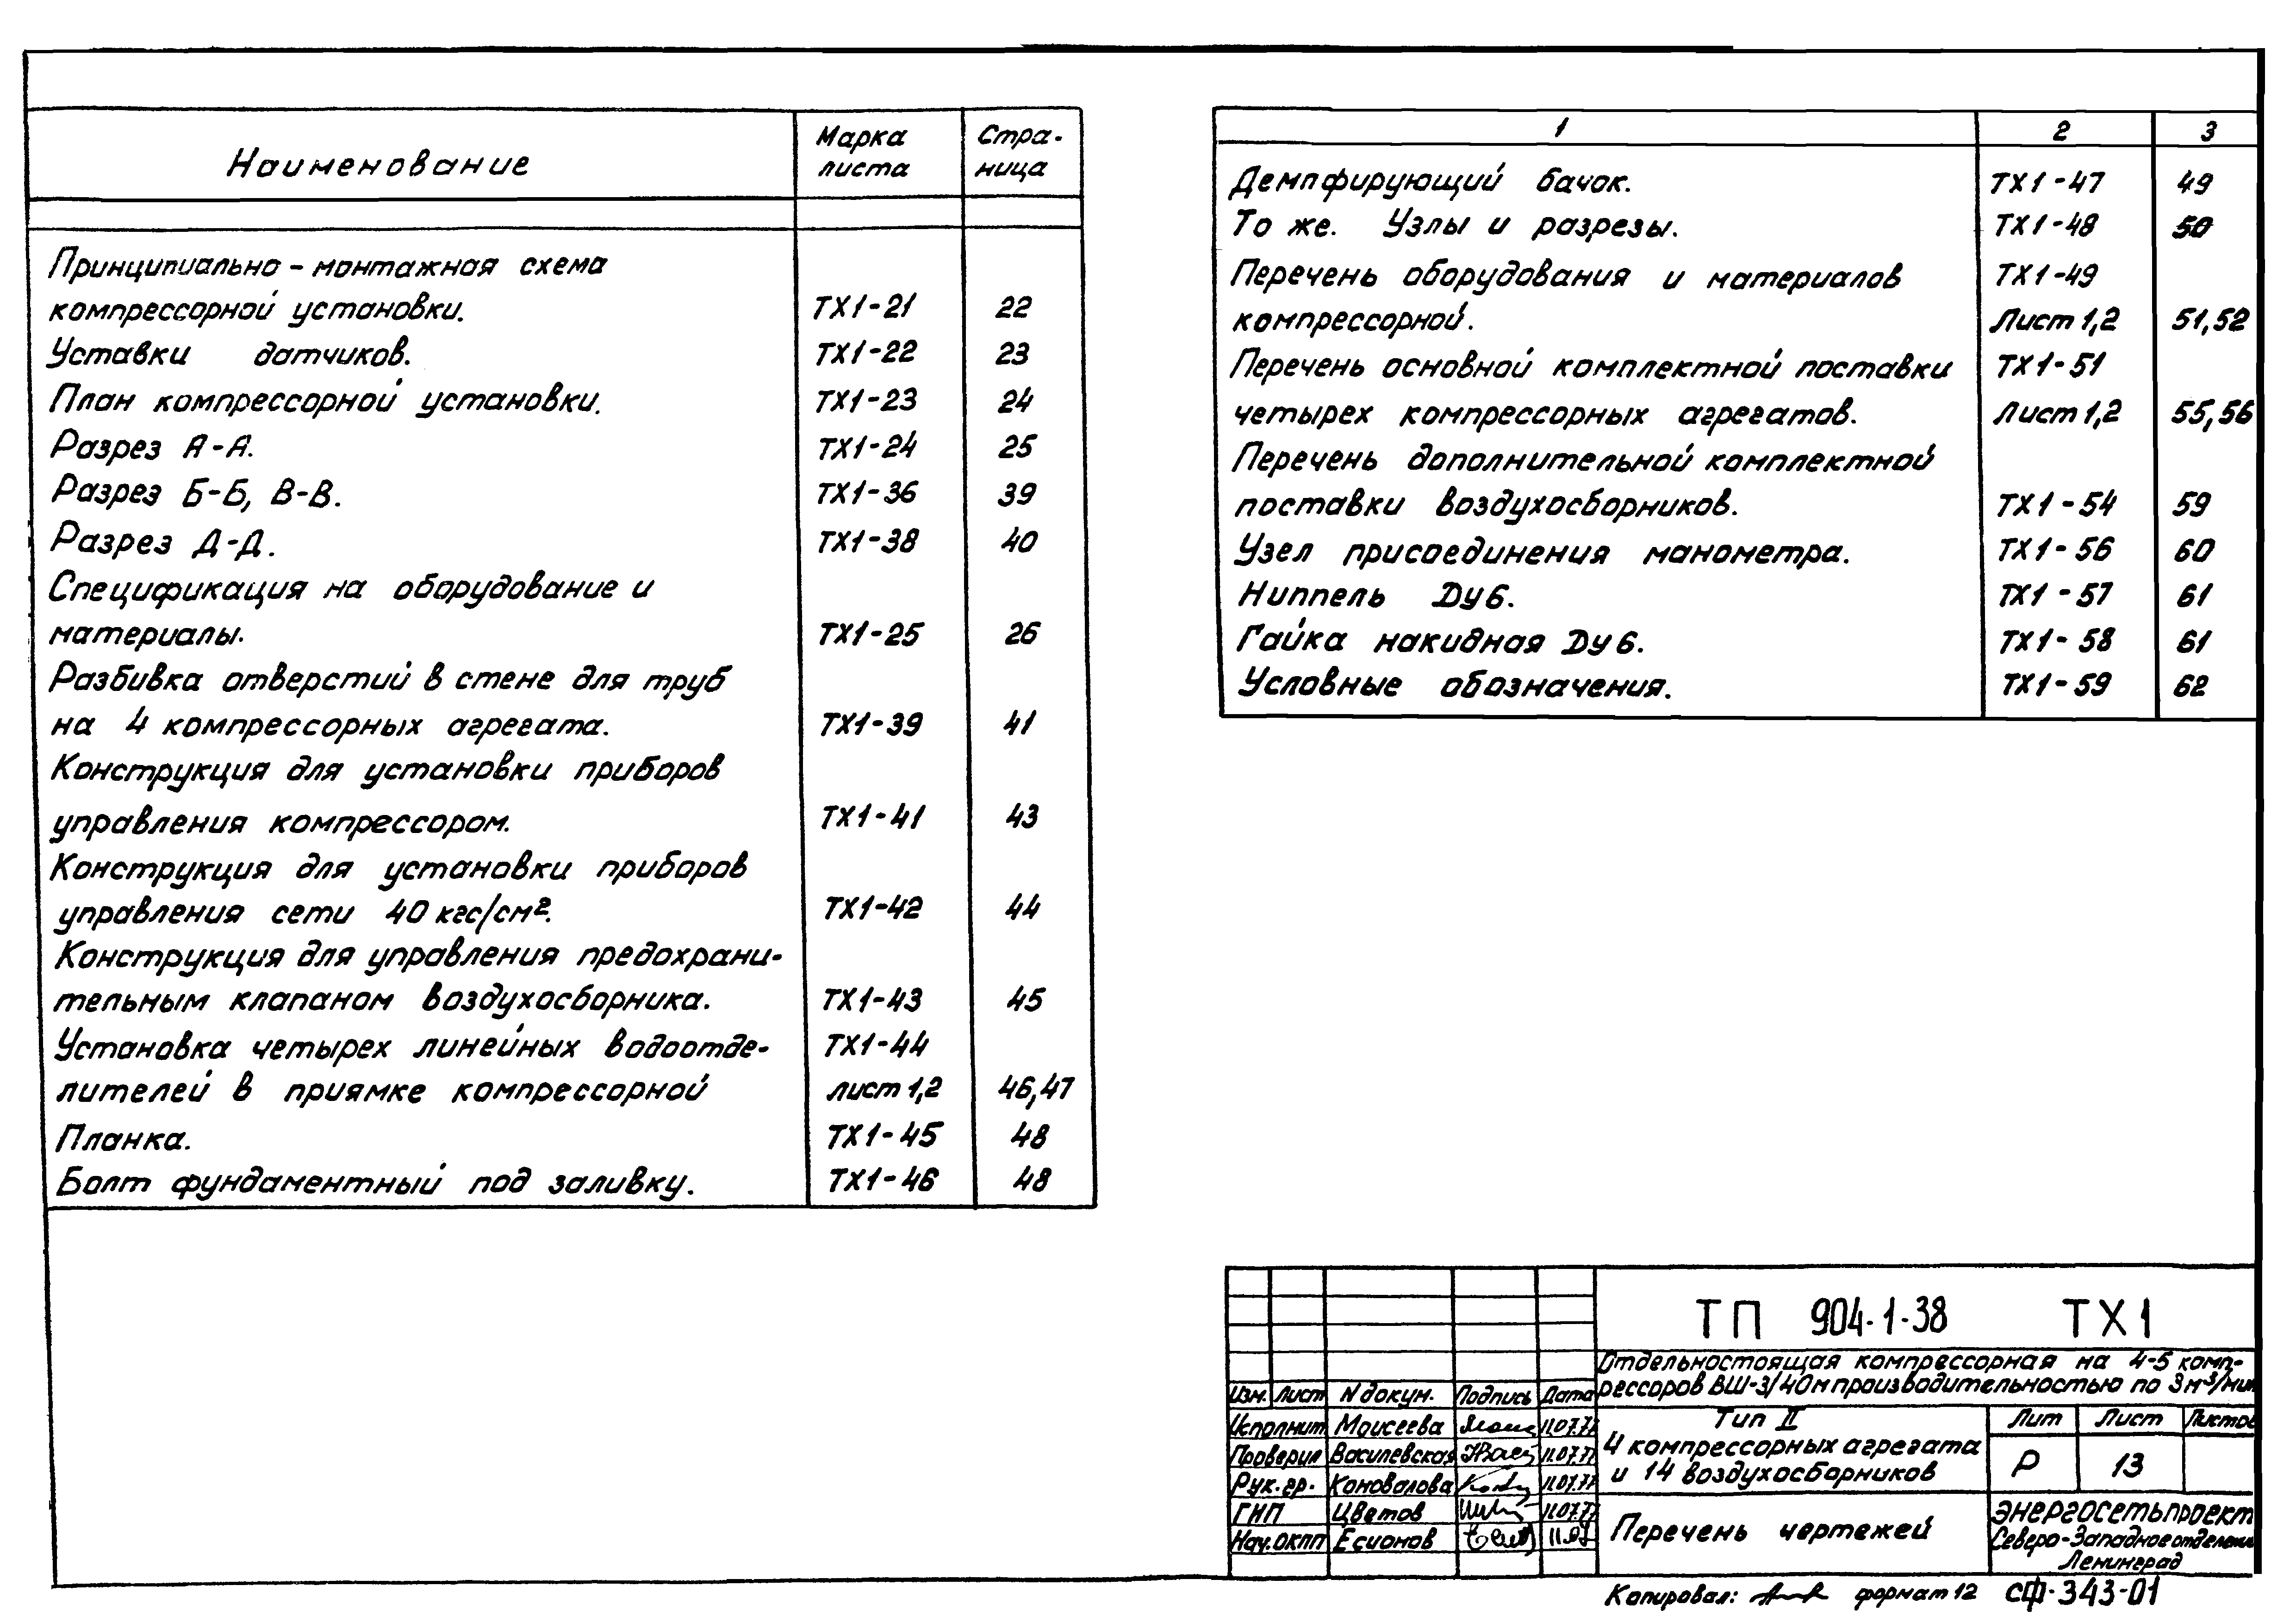 Наименование Марка листа Стра-ница
Принципиально-монтажная схема
компрессорной установки. ТХ1-21 22
Уставки датчиков. ТХ1-22 23
План компрессорной установки. ТХ1-23 24
Разрез А-А. ТХ1-24 25
Разрез Б-Б, В-В. ТХ1-36 39
Разрез Д-Д. ТХ1-38 40
Спецификация на оборудование и
материалы. ТХ1-25 26
Разбивка отверстий в стене для труб
на 4 компрессорных агрегата. ТХ1-39 41
Конструкция для установки приборов
управления компрессором. ТХ1-41 43
Конструкция для установки приборов
управления сети 40 кгс/см². ТХ1-42 44
Конструкция для управления предохрани-
тельным клапаном воздухосборника. ТХ1-43 45
Установка четырех линейных водоотде- ТХ1-44
лителей в приямке компрессорной лист 1,2 46,47
Планка. ТХ1-45 48
Болт фундаментный под заливку. ТХ1-46 48
1 2 3
Демпфирующий бачок. ТХ1-47 49
То же. Узлы и разрезы. ТХ1-48 50
Перечень оборудования и материалов ТХ1-49
компрессорной. Лист 1,2 51,52
Перечень основной комплектной поставки ТХ1-51
четырех компрессорных агрегатов. Лист 1,2 55,56
Перечень дополнительной комплектной
поставки воздухосборников. ТХ1-54 59
Узел присоединения манометра. ТХ1-56 60
Ниппель Ду 6. ТХ1-57 61
Гайка накидная Ду 6. ТХ1-58 61
Условные обозначения. ТХ1-59 62
ТП 904-1-38 ТХ1
Отдельностоящая компрессорная на 4-5 комп-
рессоров ВШ-3/40м производительностью по 3м³/мин
Изм. Лист N докум. Подпись Дата
Исполнит Моисеева 11.07.77
Проверил Василевская 11.07.77
Рук.гр. Коновалова 11.07.77
ГИП Цветов 11.07.77
Нач.ОКПП Есионов 11.07
Тип II
4 компрессорных агрегата
и 14 воздухосборников
Лит Лист Листов
Р 13
Перечень чертежей
Энергосетьпроект
Северо-Западное отделение
Ленинград
Копировал: формат 12 СФ-343-01